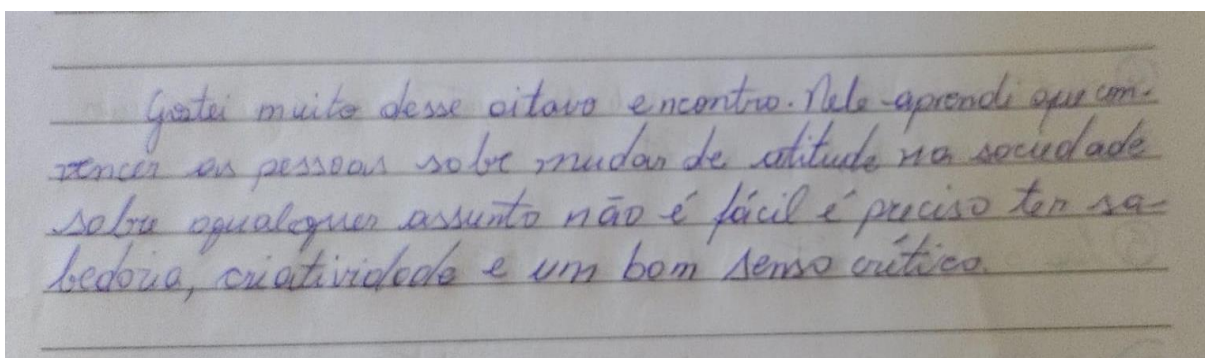 Gostei muito desse oitavo encontro. Nele aprendi que con-
vencer as pessoas sobre mudar de atitude na sociedade
sobre qualquer assunto não é fácil é preciso ter sa-
bedoria, criatividade e um bom senso crítico.